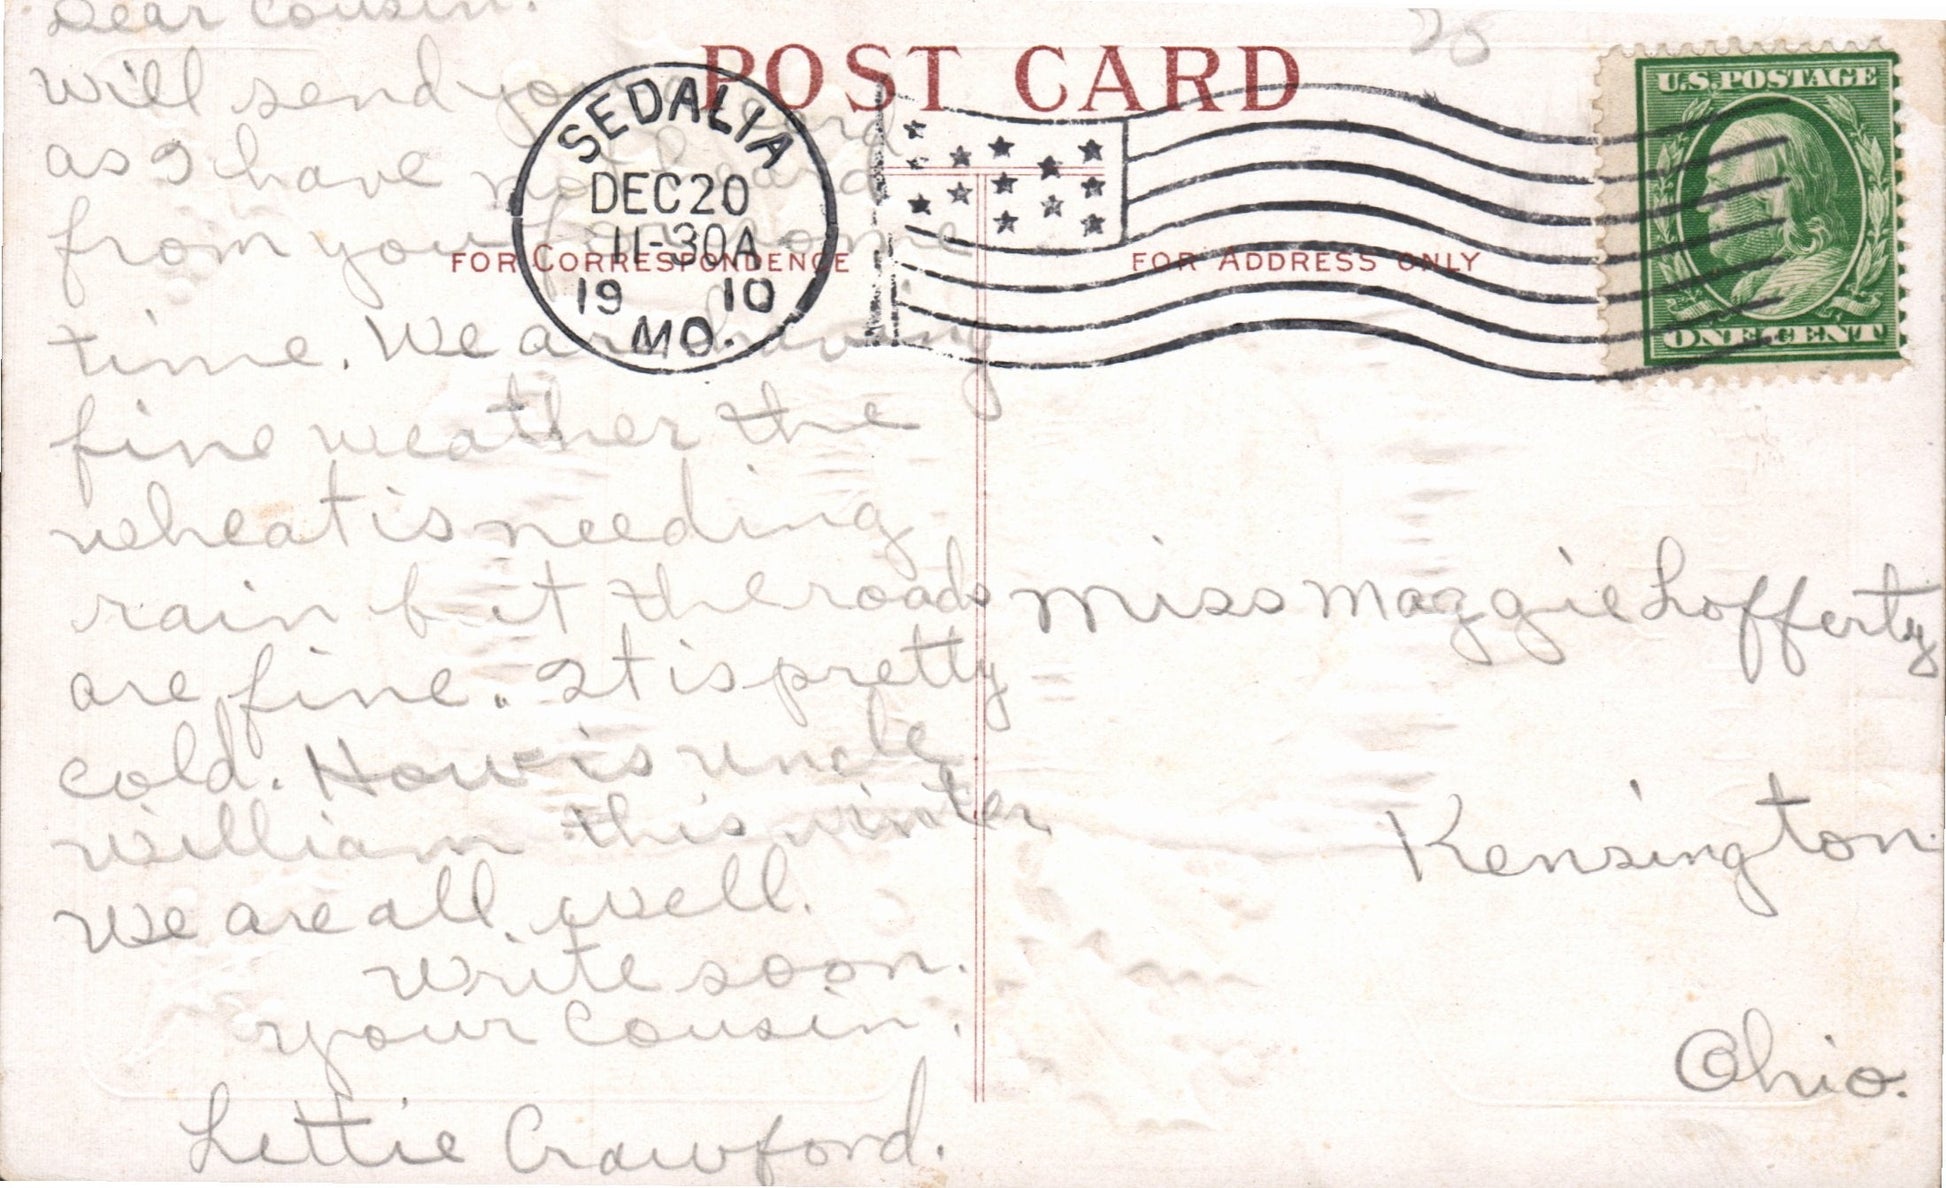 Dear Cousin.
will send you a card
as I have not heard
from you for some
time. We are having
fine weather the
wheat is needing
rain but the roads
are fine. It is pretty
cold. How is uncle
william this winter
We are all well.
write soon.
your Cousin.
Lettie Crawford.
POST CARD
25
FOR CORRESPONDENCE
FOR ADDRESS ONLY
SEDALIA
DEC 20
11-30A
19 10
MO.
U.S. POSTAGE
ONE CENT
Miss Maggie Lofferty
Kensington
Ohio.